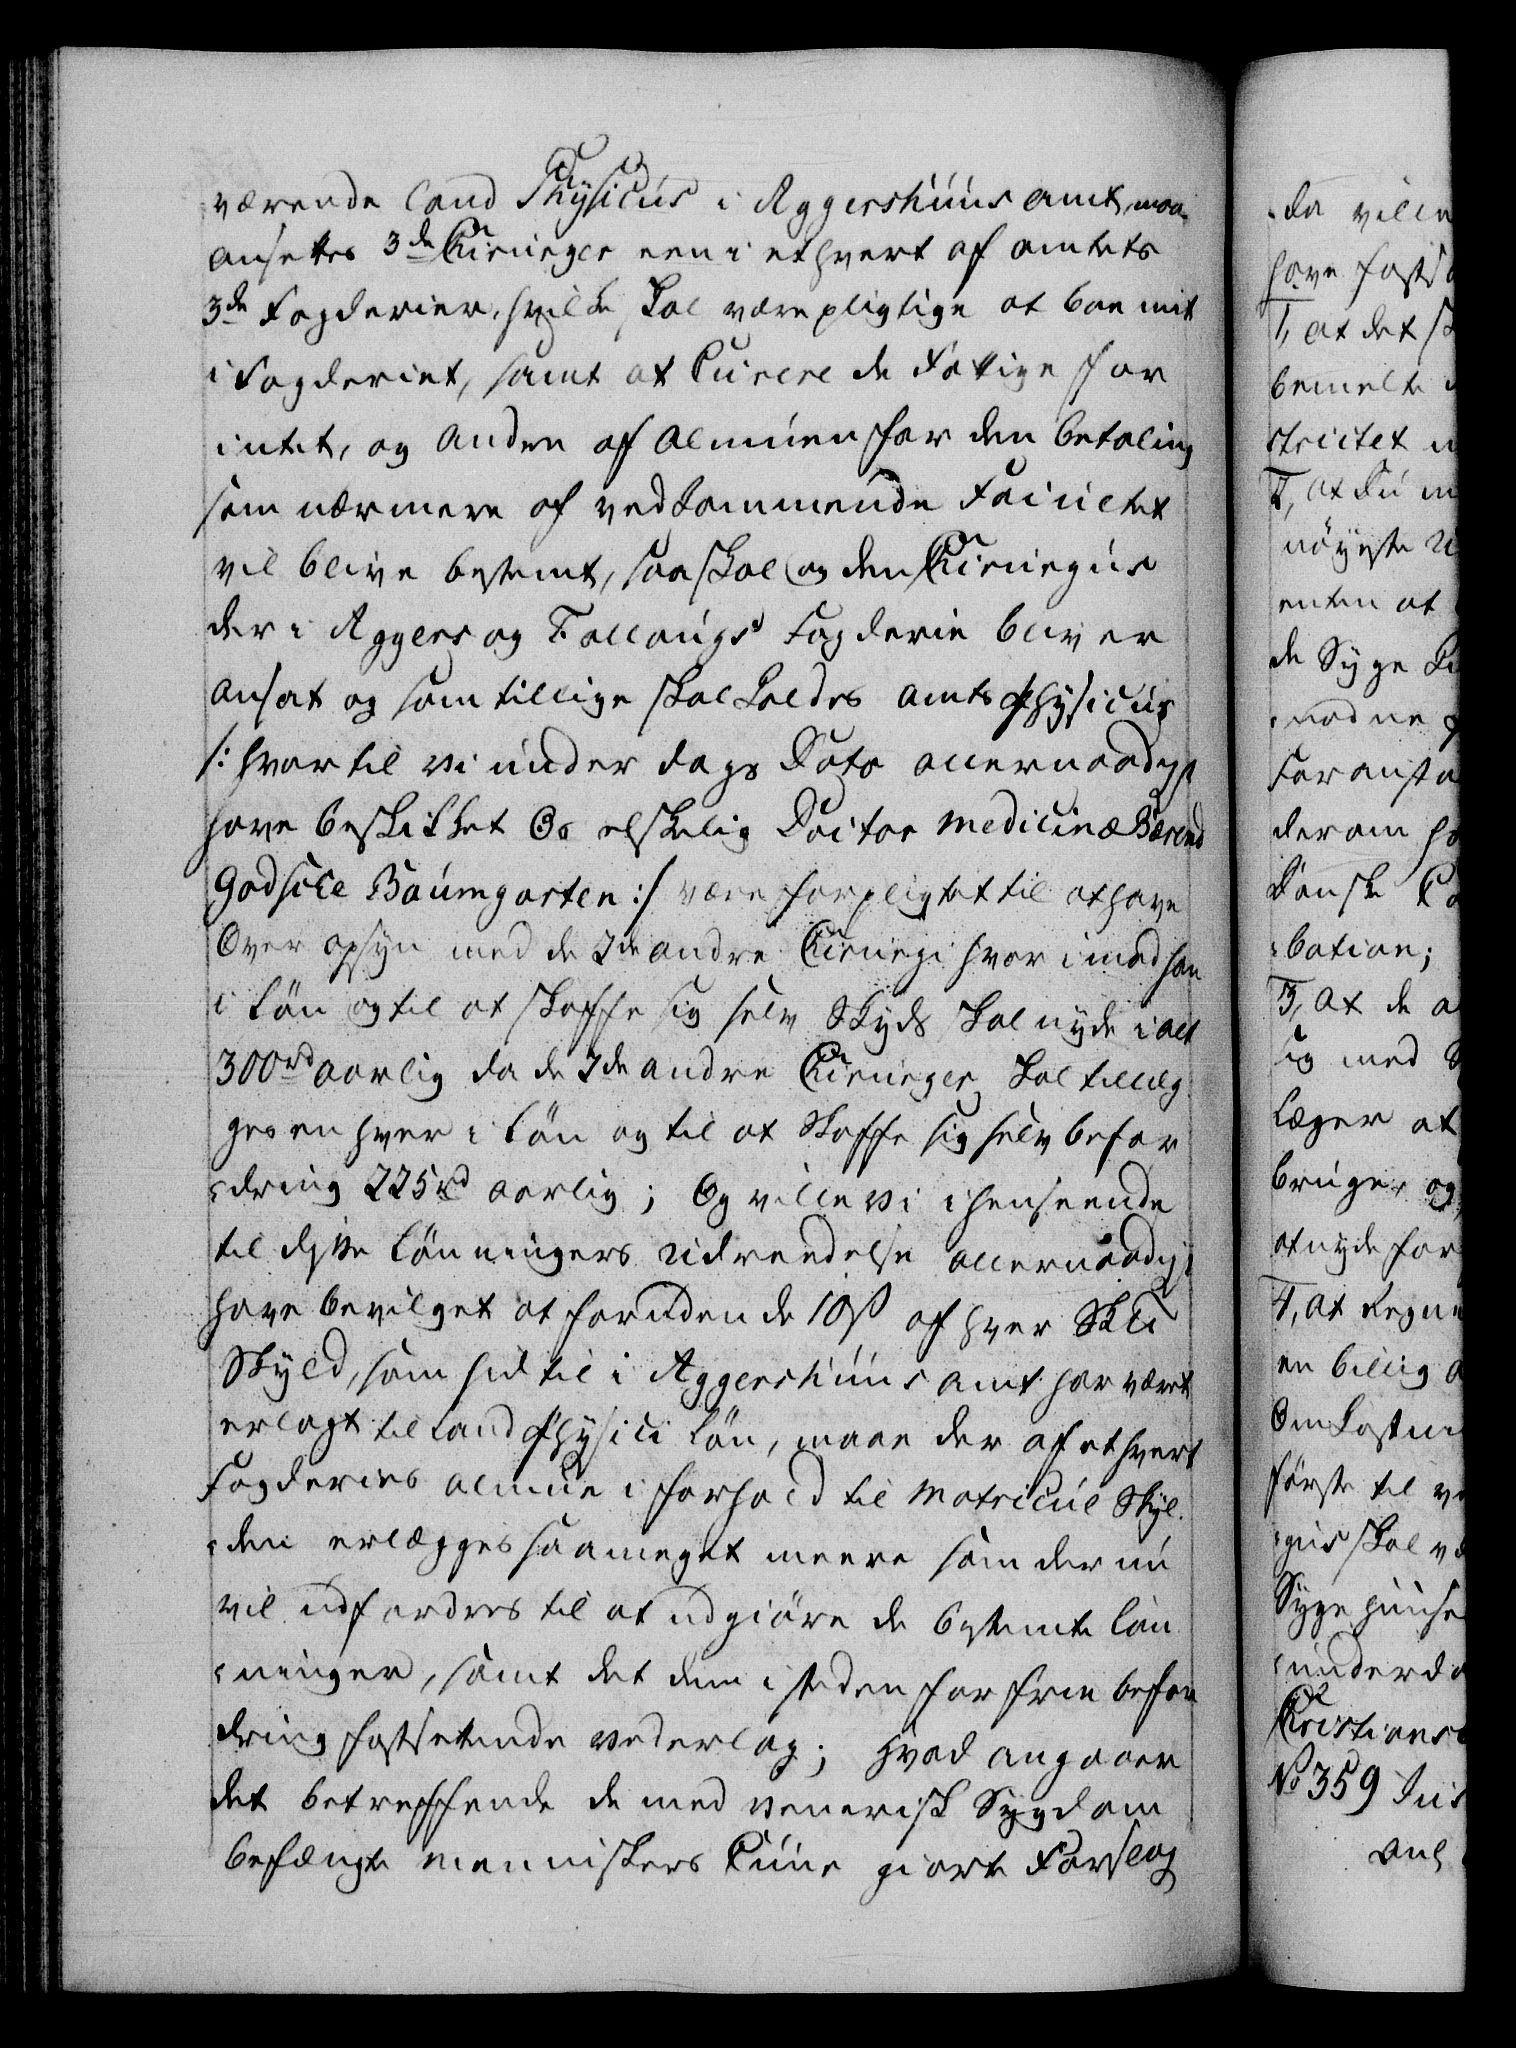 værende Land Physicus i Aggershuus Amt, maa
ansættes 3de Chirurger een i ethvert af Amtets
3de Fogderier, hvilke skal være pligtige at boe mit
i Fogderiet, samt at Curere de Fattige for
intet, og andre af Almuen for den betaling
som nærmere af vedkommende Facultet
vil blive bestemt, saa skal og den Chirurgus
der i Aggers og Follougs Fogderie bliver
ansat og som tillige skal kaldes Amts Physicus
/: hvortil vi under dags Dato allernaadigst
have beskikket Os elskelig Doctor Medicinæ Bærend
Godsche Baumgarten :/ være forpligtet til at have
Over opsyn med de 2de andre Chirurgi hvorimod han
i Løn og til at skaffe sig selv Skyds skal nyde i alt
300rd aarlig da de 2de andre Chirurger skal tillæg
ges en hver i Løn og til at Skaffe sig selv befor
dring 225rd aarlig; Og ville vi i henseende
til disse Lønningers Udreedelse allernaadigst
have bevilget at foruden de 10ß af hver Skd
Skyld, som hid til i Aggershuus Amt har været
erlagt til Land Physici Løn, maae der af ethvert
Fogderies Almue i forhold til Matricul Skyl
den erlægges saameget meere som der nu
vil udfordres til at udgiøre de bestemte Løn
ninger, samt det dem i steden for frie befor
dring fastsettende vederlag; Hvad angaaer
det betreffende de med venerisk Sygdom
befængte Menniskers Cuur giorte Forslag
da ville
have fasts
1, at det sk
bemelte
strictet
2, at Du
nøyeste
enten at
de Syge
Foransta
derom
Danske
bation;
3, at de
sig med
Læger at
bruge, og
at nyde for
4, at Regn
en billig
første til
gus skal
Syge huuse
underd
Christians
No 359